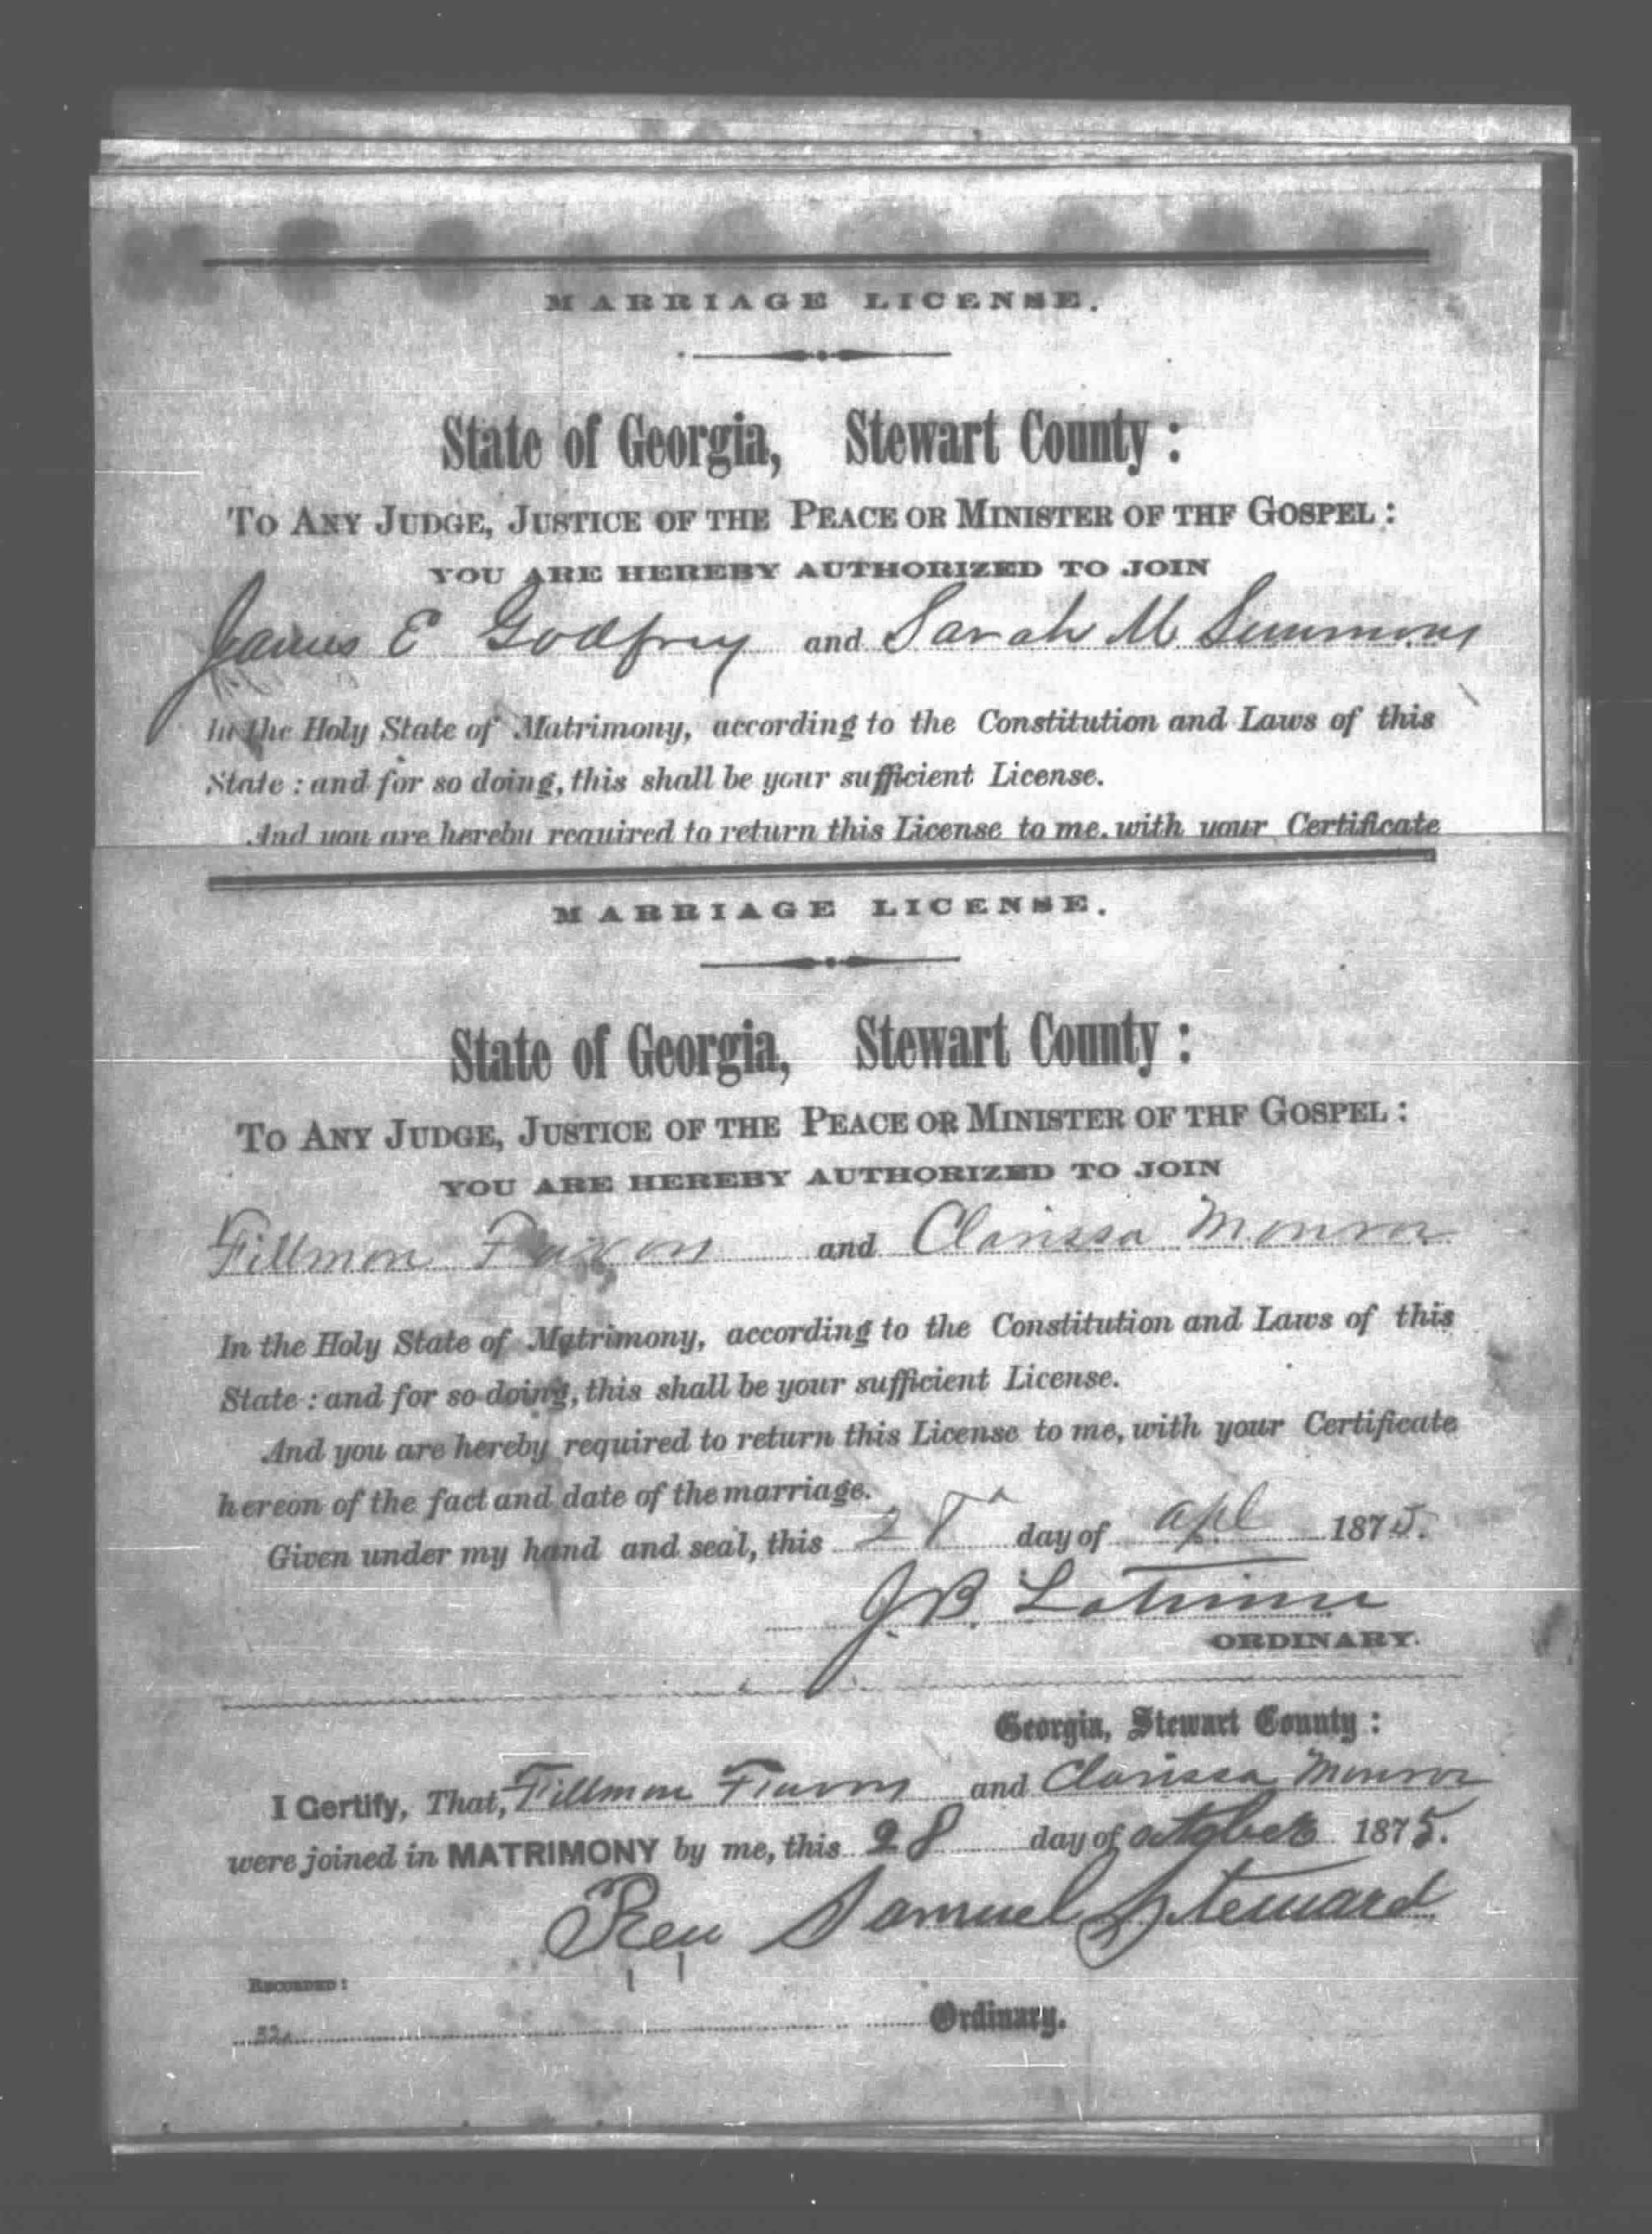 MARRIAGE LICENSE.
State of Georgia, Stewart County :
TO ANY JUDGE, JUSTICE OF THE PEACE OR MINISTER OF THF GOSPEL :
YOU ARE HEREBY AUTHORIZED TO JOIN
James E Godfrey and Sarah M Simmons
In the Holy State of Matrimony, according to the Constitution and Laws of this
State : and for so doing, this shall be your sufficient License.
And you are hereby required to return this License to me, with your Certificate
MARRIAGE LICENSE.
State of Georgia, Stewart County :
TO ANY JUDGE, JUSTICE OF THE PEACE OR MINISTER OF THF GOSPEL :
YOU ARE HEREBY AUTHORIZED TO JOIN
Fillmon and Clarissa Monroe
In the Holy State of Matrimony, according to the Constitution and Laws of this
State : and for so doing, this shall be your sufficient License.
And you are hereby required to return this License to me, with your Certificate
hereon of the fact and date of the marriage.
Given under my hand and seal, this 28th day of apl 1875.
JB Latimer
ORDINARY.
Georgia, Stewart County :
I Certify, That, Fillmon and Clarissa Monroe
were joined in MATRIMONY by me, this 28 day of 1875.
Rev Samuel Steward
RECORDED :
Ordinary.